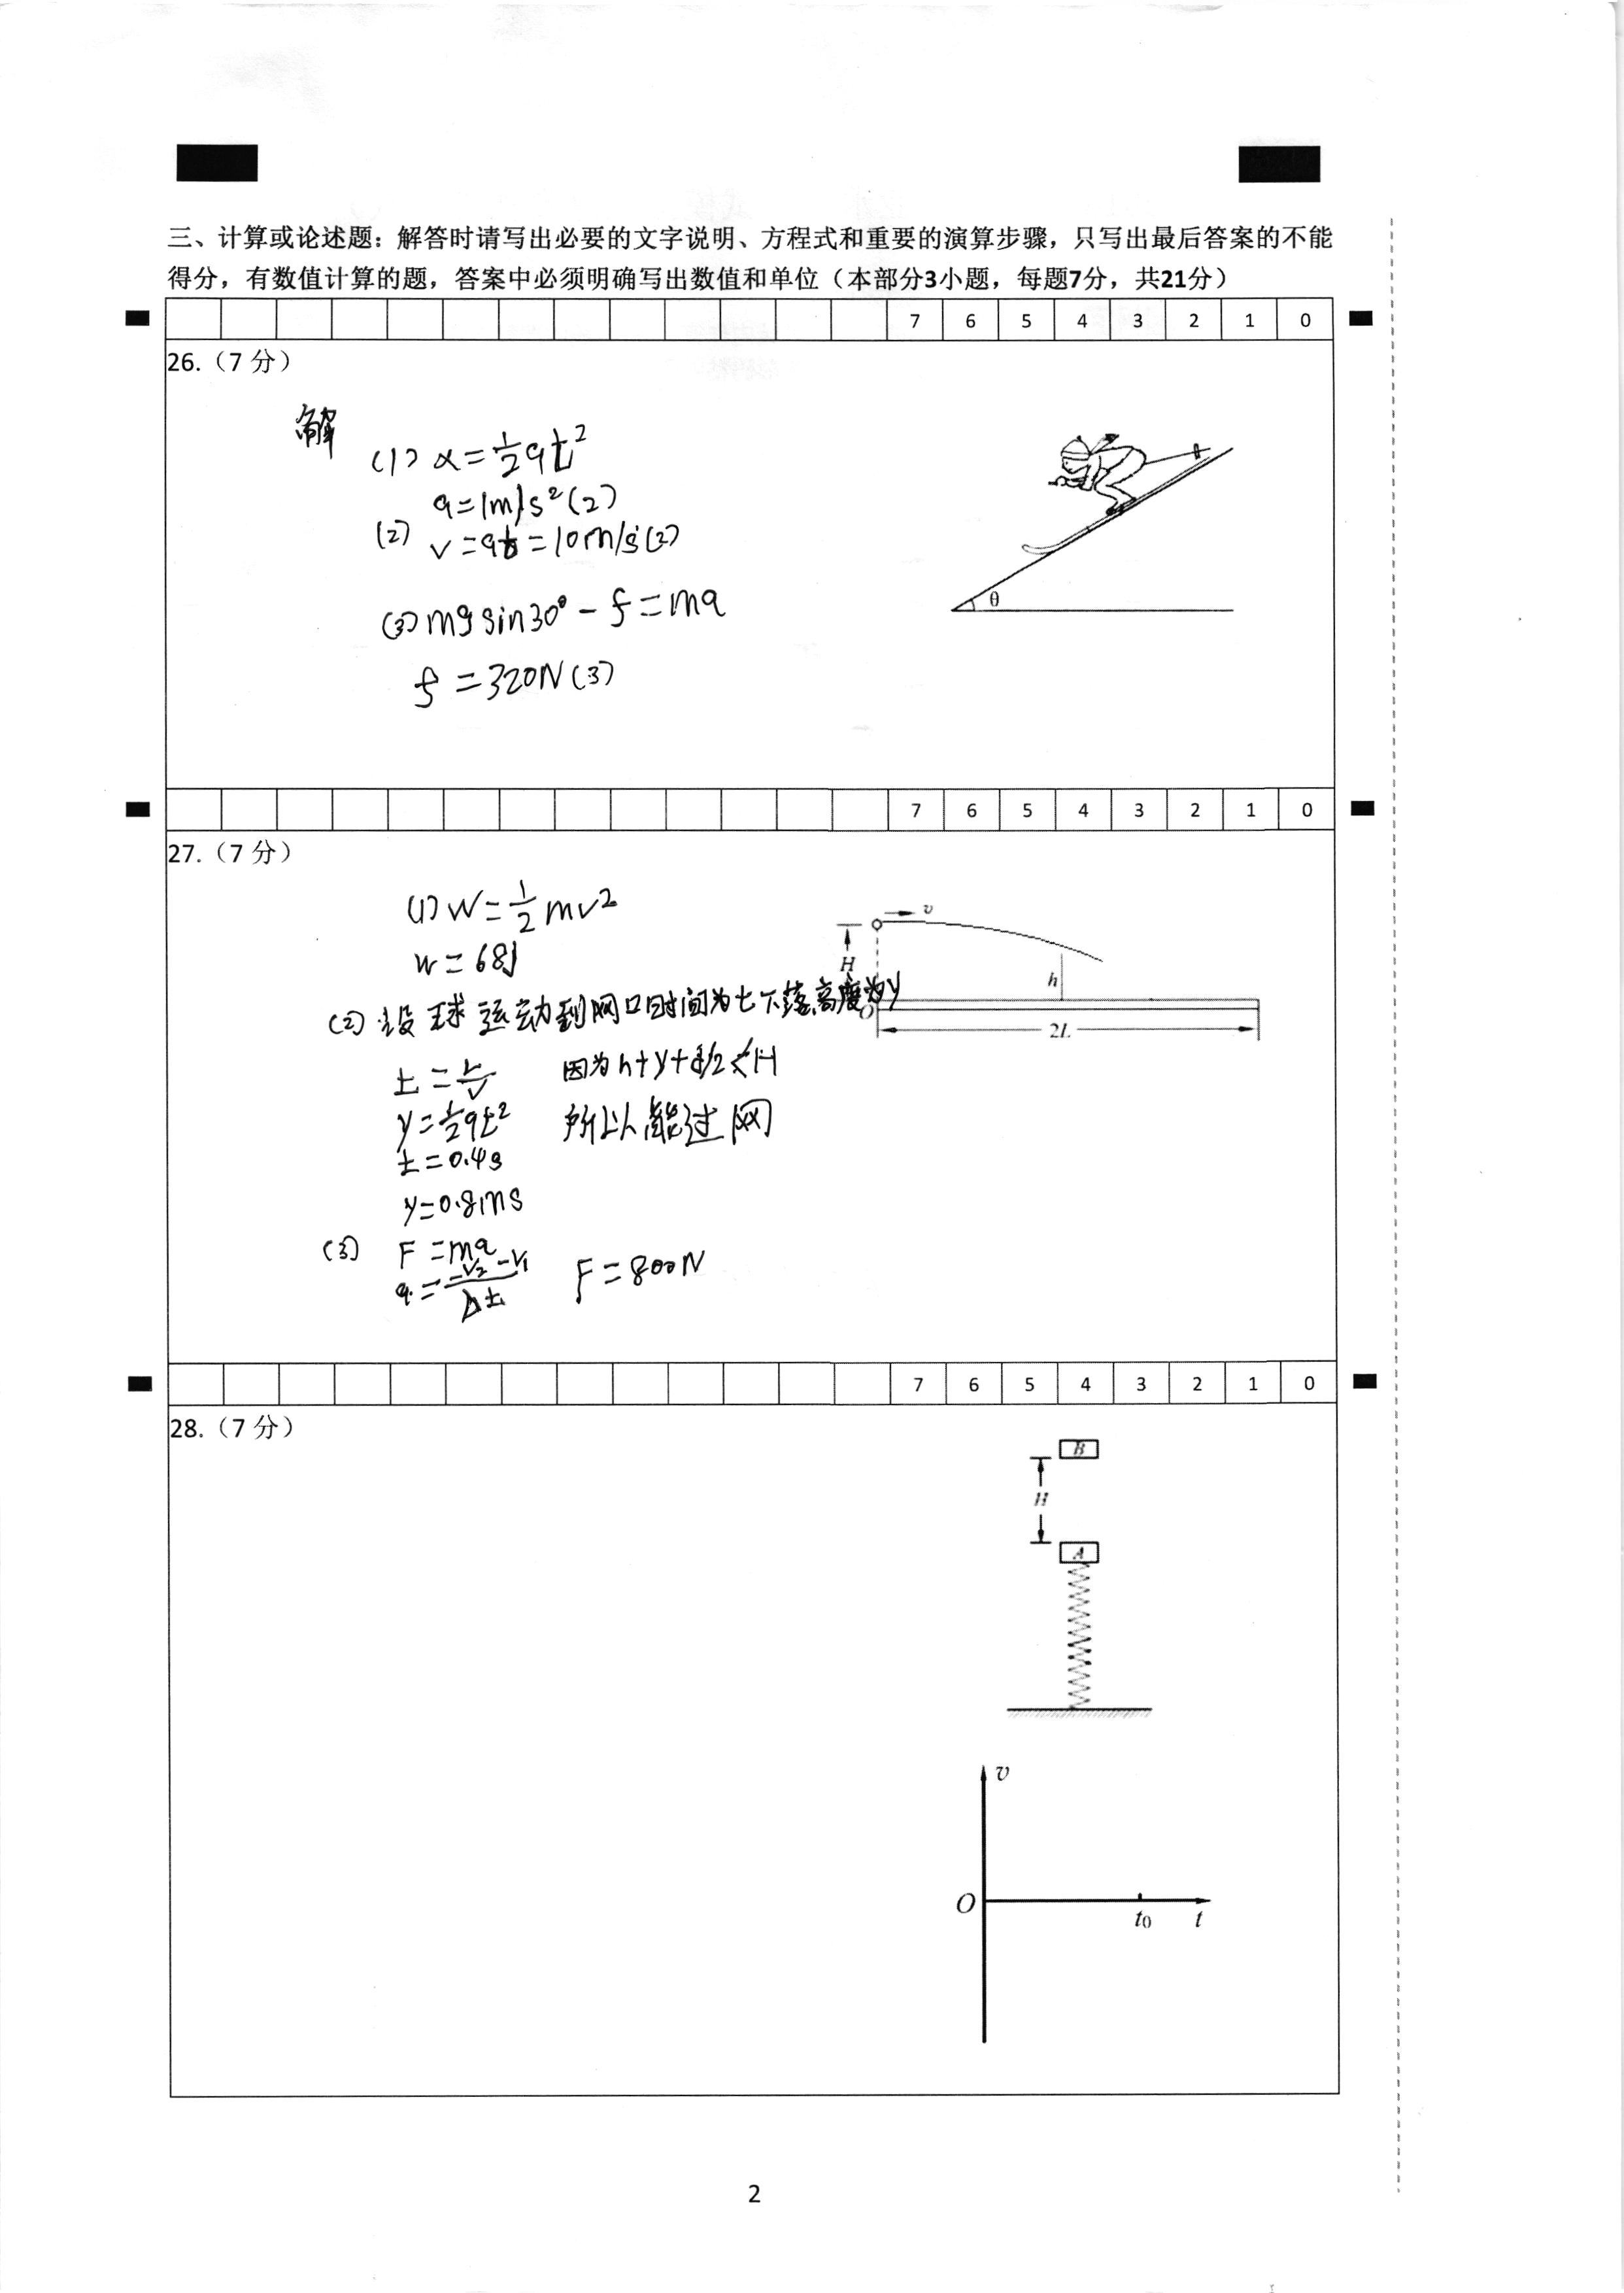 三、计算或论述题：解答时请写出必要的文字说明、方程式和重要的演算步骤，只写出最后答案的不能
得分，有数值计算的题，答案中必须明确写出数值和单位（本部分3小题，每题7分，共21分）
7 6 5 4 3 2 1 0
26.（7 分）
解
(1) x=½at²
a=1m/s²(2)
(2) v=at=10m/s(2)
(3) mgsin30°-f=ma
f=320N(3)
θ
7 6 5 4 3 2 1 0
27.（7 分）
(1) W=½mv²
W=68J
(2) 设球运动到网口时间为t下落高度为y
t=L/v 因为h+y+d/2<H
y=½gt² 所以能过网
t=0.4s
y=0.8ms
(3) F=ma
a=(-v₂-v₁)/Δt F=800N
v
H
h
O
2L
7 6 5 4 3 2 1 0
28.（7 分）
B
H
A
v
O
t₀ t
2